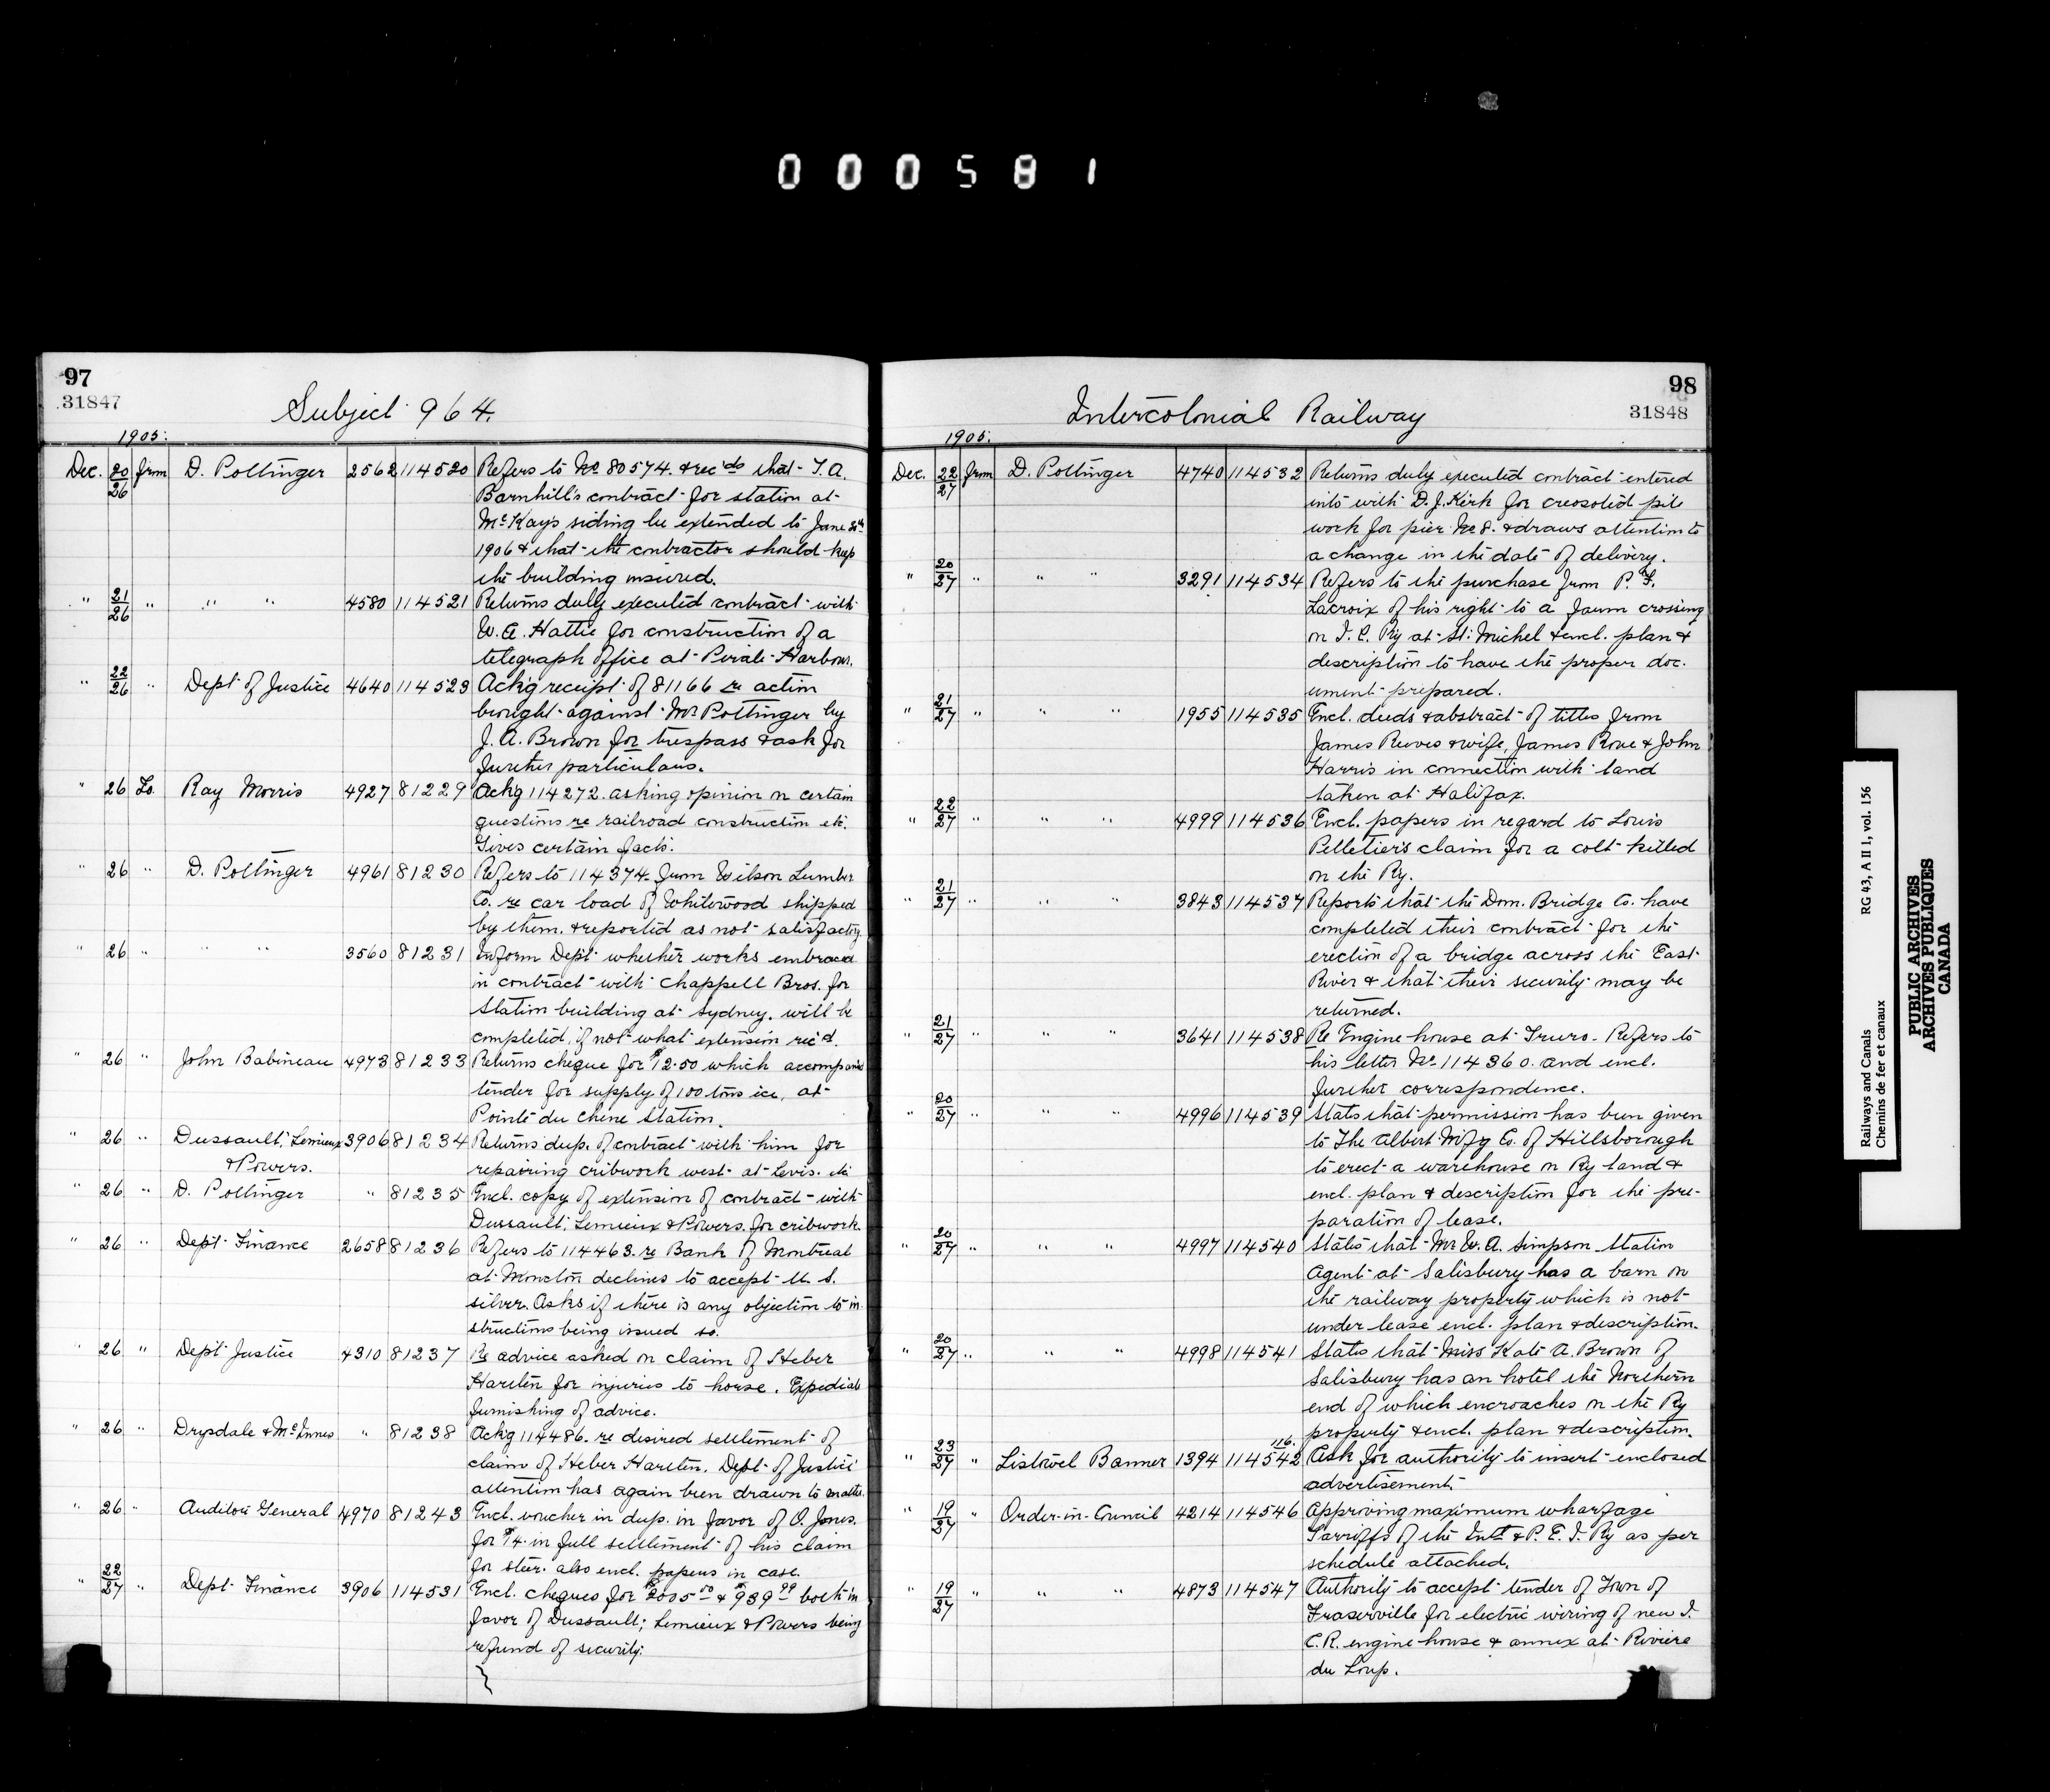 000581
97
31847
Subject 964.
1905.
Dec. 20/26 from D. Pottinger 2562 114520 Refers to No 80574. & rec'ds that T. A.
Barnhill's contract for station at
McKay's siding be extended to June 20th
1906 & that the contractor should keep
the building insured.
" 21/26 " " " 4580 114521 Returns duly executed contract with
W. A. Hattie for construction of a
telegraph office at Pirate Harbour.
" 22/26 " Dept of Justice 4640 114523 Ack'g receipt of 81166 re action
brought against Mr Pottinger by
J. A. Brown for trespass & ask for
further particulars.
" 26 To Ray Morris 4927 81229 Ackg 114272. asking opinion on certain
questions re railroad construction etc.
Gives certain facts.
" 26 " D. Pottinger 4961 81230 Refers to 114374. from Wilson Lumber
Co. re car load of Whitewood shipped
by them. & reported as not satisfactory
" 26 " " " 3560 81231 Inform Dept whether works embraced
in contract with Chappell Bros. for
Station building at Sydney. will be
completed, if not what extension rec'd.
" 26 " John Babineau 4973 81233 Returns cheque for $12.50 which accompanied
tender for supply of 100 tons ice, at
Pointe du Chene Station.
" 26 " Dussault, Lemieux 3906 81234 Returns dup. of contract with him for
& Powers. repairing cribwork west at Levis. etc
" 26 " D. Pottinger " 81235 Encl. copy of extension of contract with
Dussault, Lemieux & Powers. for cribwork.
" 26 " Dept Finance 2658 81236 Refers to 114463. re Bank of Montreal
at Moncton declines to accept U. S.
silver. Asks if there is any objection to in-
structions being issued so.
" 26 " Dept Justice 4310 81237 Re advice asked on claim of Heber
Harsten for injuries to horse. Expedite
furnishing of advice.
" 26 " Drysdale & McInnes " 81238 Ackg 114486. re desired settlement of
claim of Heber Harsten. Dept of Justice
attention has again been drawn to matter.
" 26 " Auditor General 4970 81243 Encl. voucher in dup. in favor of O. Jones.
for $14. in full settlement of his claim
for steer. also encl. papers in case.
" 22/27 " Dept Finance 3906 114531 Encl. cheques for $2005 00 & $939 99 both in
favor of Dussault, Lemieux & Powers being
refund of security.
98
31848
Intercolonial Railway
1905.
Dec. 22/27 from D. Pottinger 4740 114532 Returns duly executed contract entered
into with D. J. Kirk for creosoted pile
work for pier No 8. & draws attention to
a change in the date of delivery.
" 20/27 " " " 3291 114534 Refers to the purchase from P. F.
Lacroix of his right to a farm crossing
on I. C. Ry at St. Michel & encl. plan &
description to have the proper doc-
ument prepared.
" 21/27 " " " 1955 114535 Encl. deeds & abstract of titles from
James Reeves & wife, James Rowe & John
Harris in connection with land
taken at Halifax.
" 22/27 " " " 4999 114536 Encl. papers in regard to Louis
Pelletier's claim for a colt killed
on the Ry.
" 21/27 " " " 3843 114537 Reports that the Dom. Bridge Co. have
completed their contract for the
erection of a bridge across the East
River & that their security may be
returned.
" 21/27 " " " 3641 114538 Re Engine house at Truro. Refers to
his letter No 114360. and encl.
further correspondence.
" 20/27 " " " 4996 114539 States that permission has been given
to The Albert Mfg Co. of Hillsborough
to erect a warehouse on Ry land &
encl. plan & description for the pre-
paration of lease.
" 20/27 " " " 4997 114540 States that Mr W. A. Simpson Station
Agent at Salisbury has a barn on
the railway property which is not
under lease encl. plan & description.
" 20/27 " " " 4998 114541 States that Miss Kate A. Brown of
Salisbury has an hotel the Northern
end of which encroaches on the Ry
property & encl. plan & description.
116.
" 23/27 " Listowel Banner 1394 114542 Ask for authority to insert enclosed
advertisement.
" 19/27 " Order-in-Council 4214 114546 Approving maximum wharfage
Tarriffs of the Intl & P. E. I. Ry as per
schedule attached.
" 19/27 " " " 4873 114547 Authority to accept tender of Town of
Fraserville for electric wiring of new I.
C. R. engine house & annex at Riviere
du Loup.
Railways and Canals RG 43, A II 1, vol. 156
Chemins de fer et canaux
PUBLIC ARCHIVES
ARCHIVES PUBLIQUES
CANADA